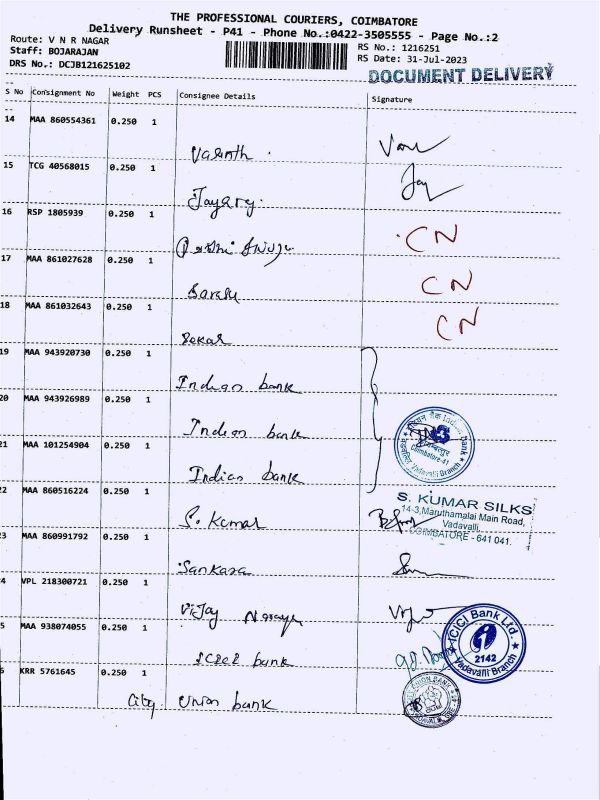 THE PROFESSIONAL COURIERS, COIMBATORE
Delivery Runsheet - P41 - Phone No.:0422-3505555 - Page No.:2
Route: V N R NAGAR
Staff: BOJARAJAN
DRS No.: DCJB121625102
RS No.: 1216251
RS Date: 31-Jul-2023
DOCUMENT DELIVERY
S No Consignment No Weight PCS Consignee Details Signature
14 MAA 860554361 0.250 1
Vasanth
15 TCG 40568015 0.250 1
16 RSP 1805939 0.250 1
CN
17 MAA 861027628 0.250 1
CN
18 MAA 861032643 0.250 1
CN
Sekar
19 MAA 943920730 0.250 1
Indian bank
20 MAA 943926989 0.250 1
Indian bank
21 MAA 101254904 0.250 1
Indian bank
Indian Bank
Coimbatore-41
Vadavalli Branch
22 MAA 860516224 0.250 1
S. Kumar
S. KUMAR SILKS
14-3, Maruthamalai Main Road,
Vadavalli,
COIMBATORE - 641 041.
23 MAA 860991792 0.250 1
Sankara
24 VPL 218300721 0.250 1
Vijay
25 MAA 938074055 0.250 1
ICICI bank
ICICI Bank Ltd.
2142
Vadavalli Branch
26 KRR 5761645 0.250 1
City Union bank